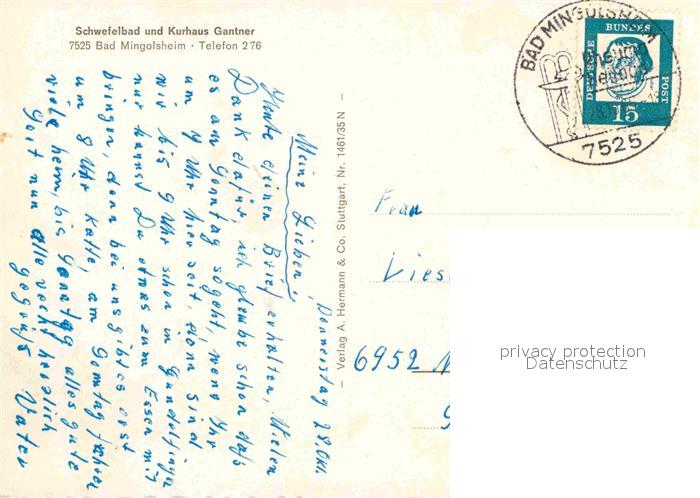 Schwefelbad und Kurhaus Gantner
7525 Bad Mingolsheim · Telefon 2 76
BAD MINGOLSHEIM
7525
DEUTSCHE
BUNDES
POST
15
– Verlag A. Hermann & Co. Stuttgart, Nr. 1461/35 N –
Donnerstag 28.
Meine Lieben!
Heute deinen Brief erhalten, Vielen
Dank dafür, ich glaube schon daß
es am Sonntag so geht, wenn Ihr
um 9 Uhr hier seit, dann sind
wir bis 9 Uhr schon in
nur kannst Du etwas zum Essen mit
bringen, denn bei uns gibt es erst
um 8 Uhr Kaffe, am Sonntag
viele heim, bis Sonntag alles gute
Seit nun alle recht herzlich
gegrüßt Vater
Frau
6952
privacy protection
Datenschutz